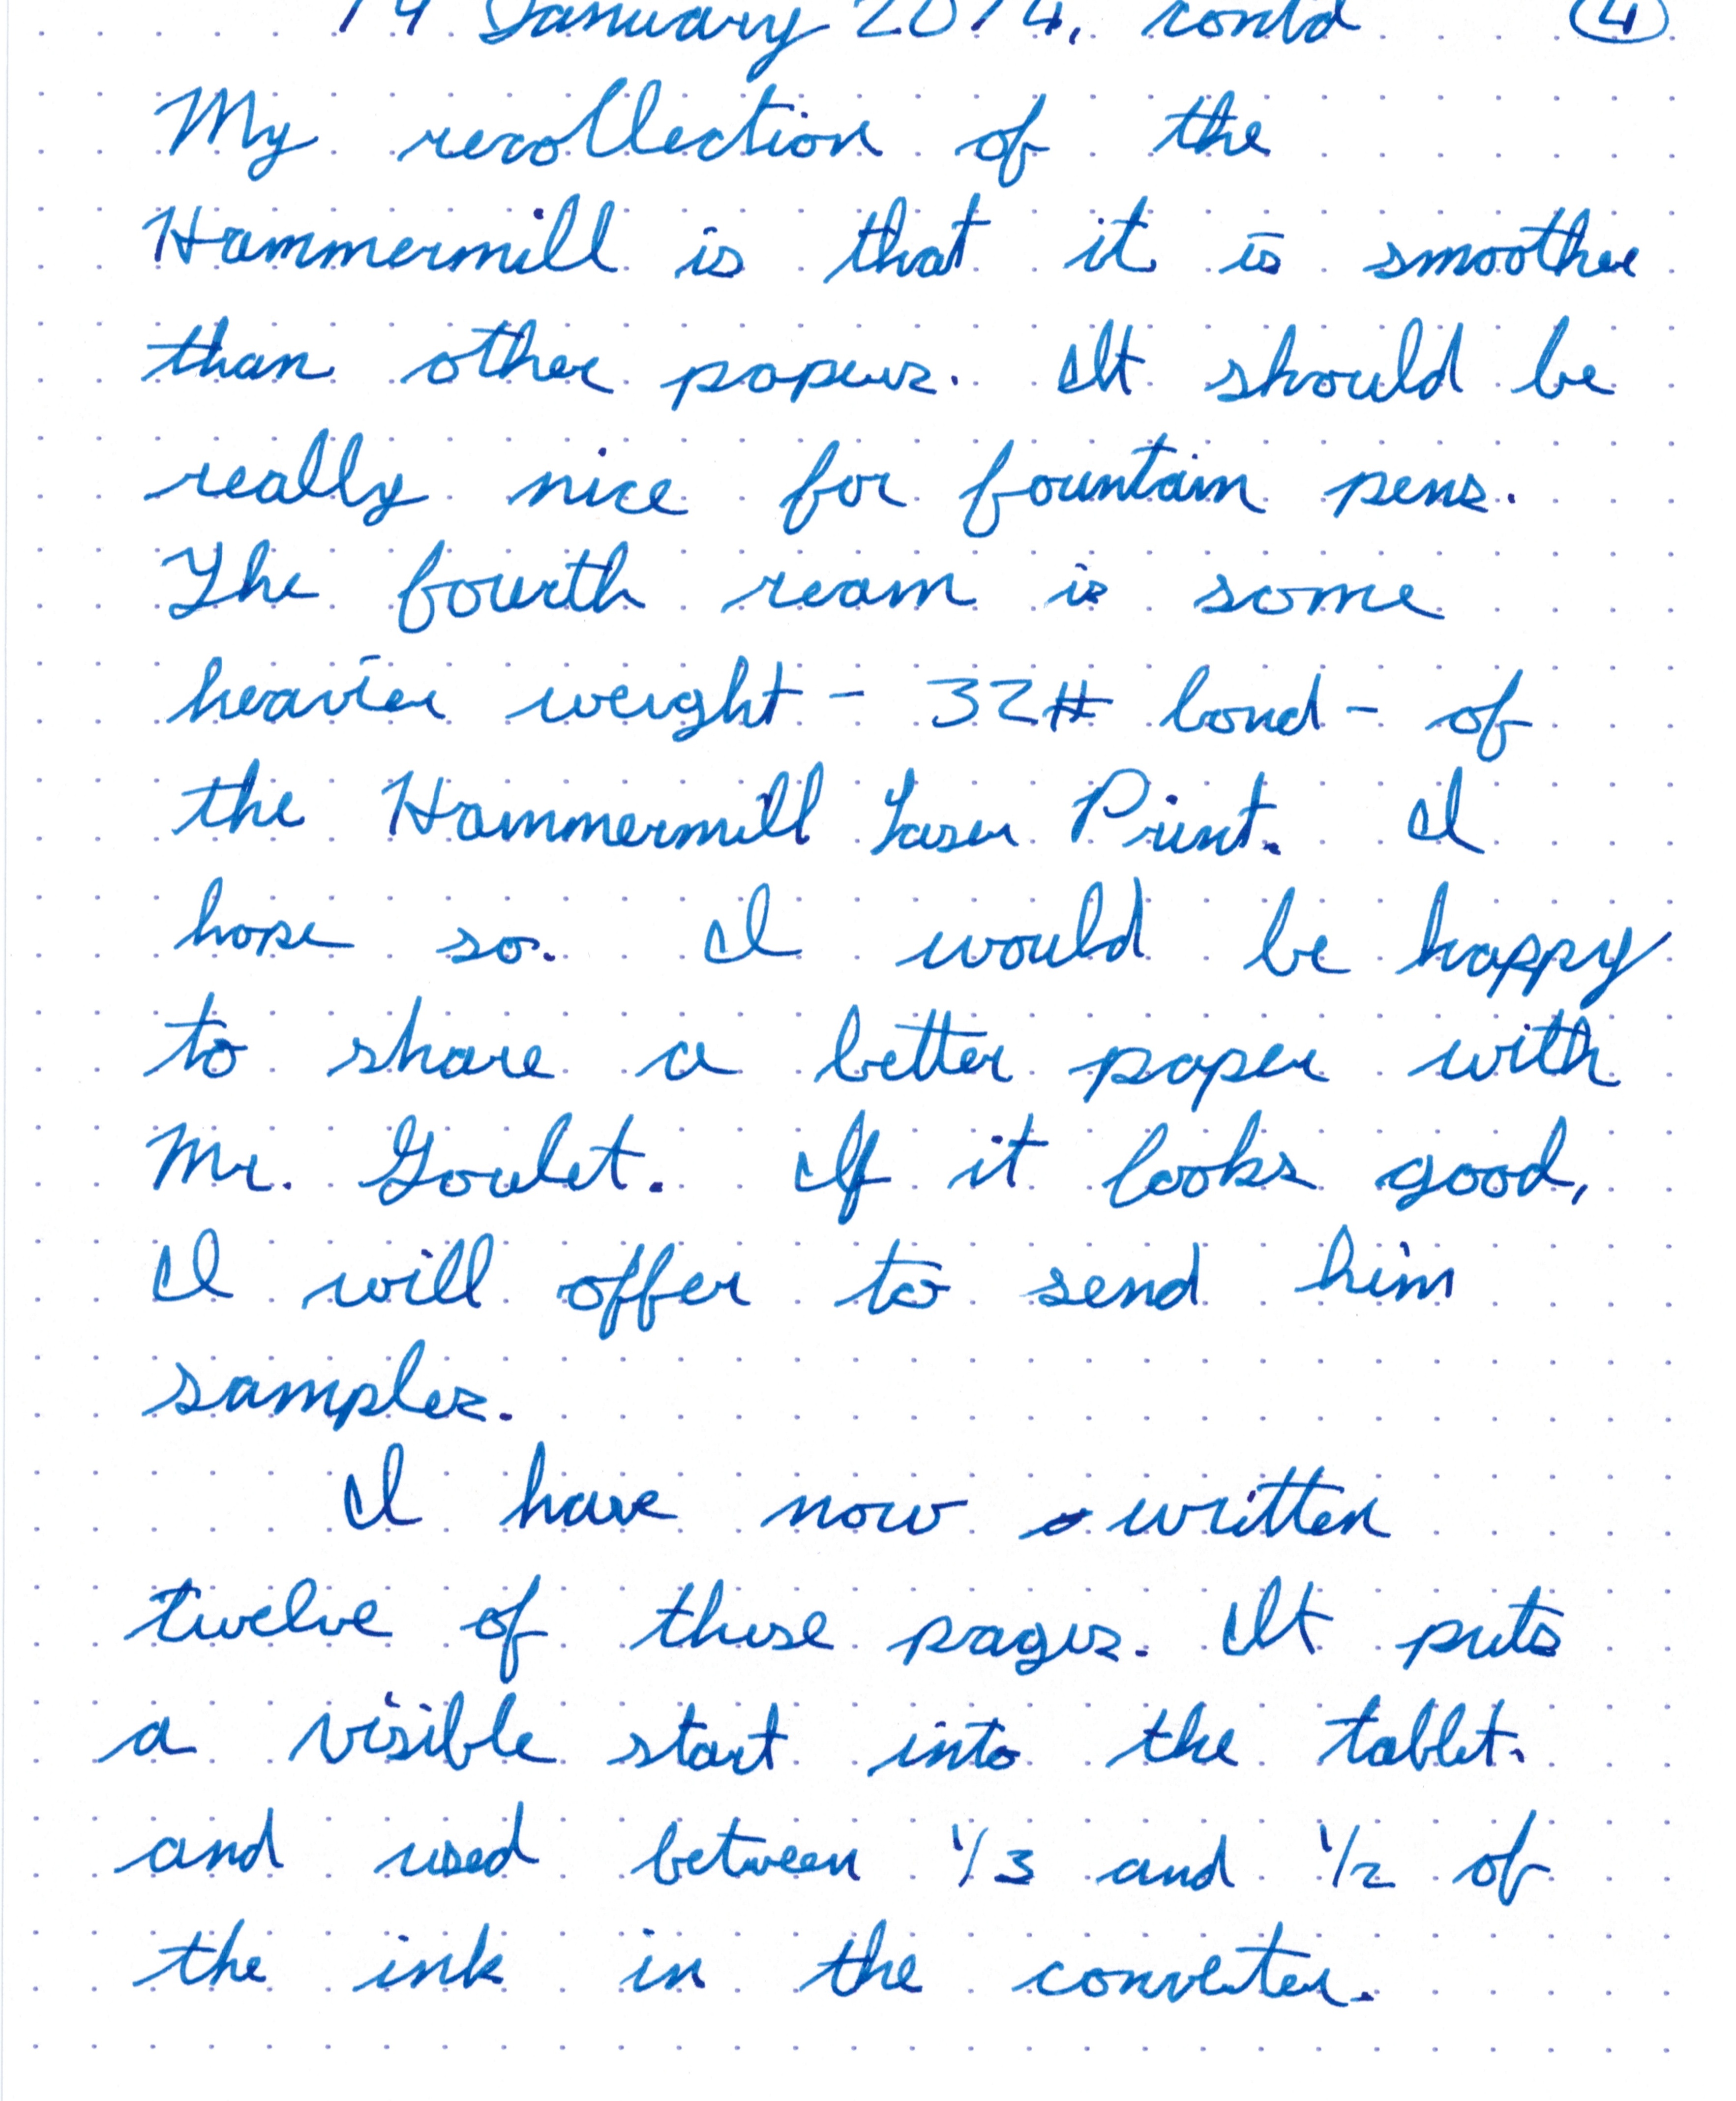 19 January 2014, cont'd 4
My recollection of the
Hammermill is that it is smoother
than other papers. It should be
really nice for fountain pens.
The fourth ream is some
heavier weight - 32# bond - of
the Hammermill Laser Print. I
hope so. I would be happy
to share a better paper with
Mr. Goulet. If it looks good,
I will offer to send him
samples.
I have now written
twelve of these pages. It puts
a visible start into the tablet.
and used between 1/3 and 1/2 of
the ink in the converter.